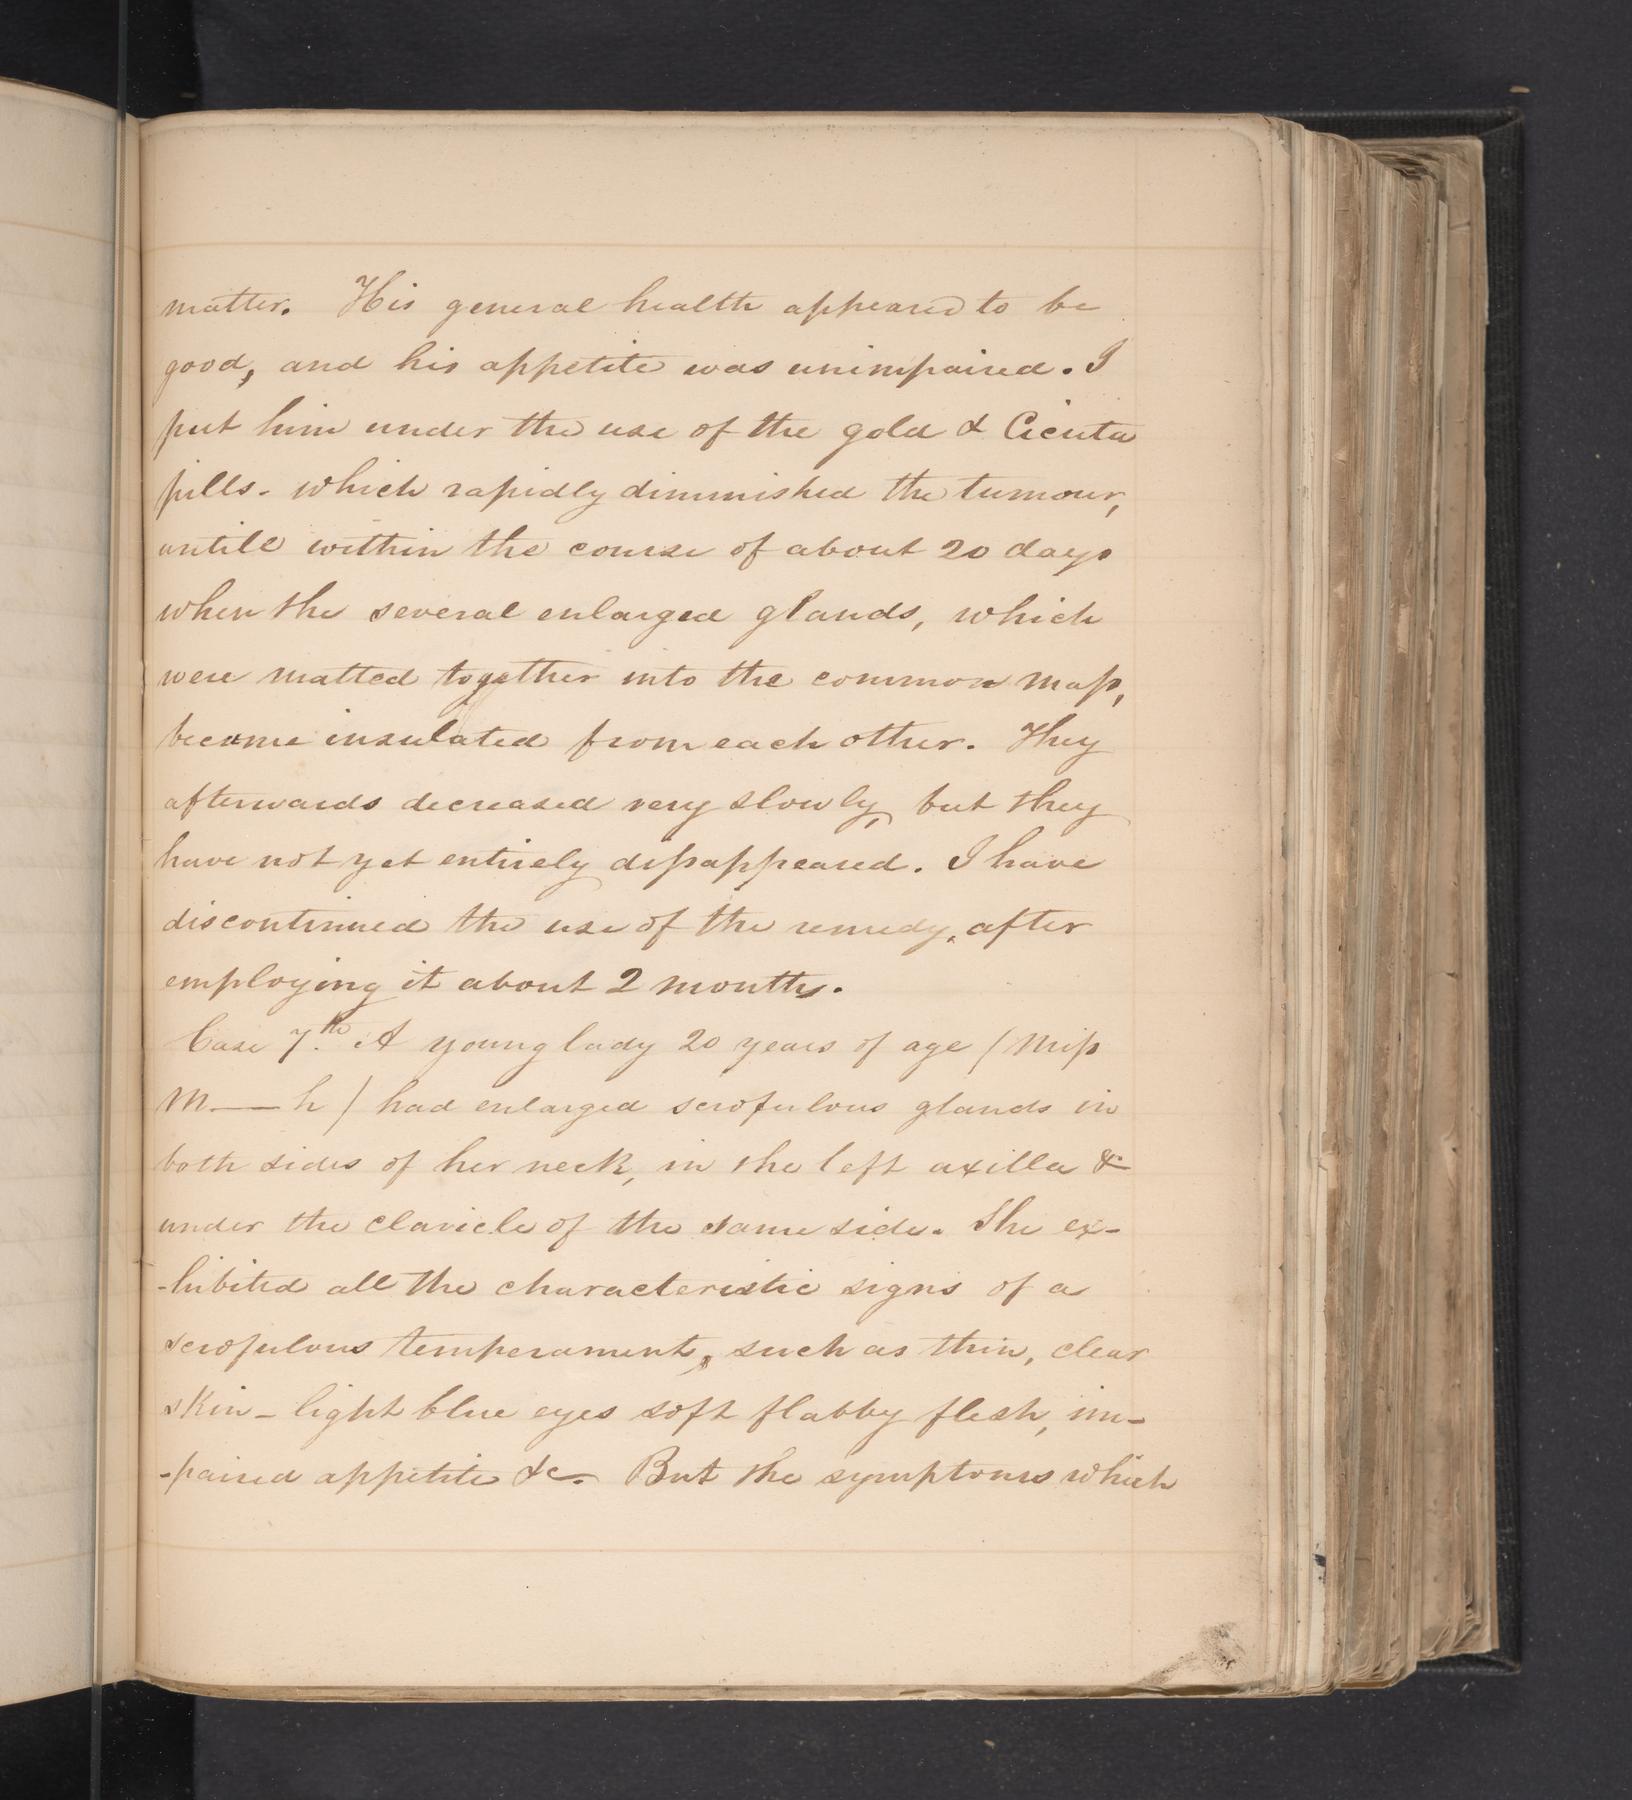 matter. His general health appeared to be
good, and his appetite was unimpaired. I
put him under the use of the gold & Cicuta
pills - which rapidly dimmished the tumour,
untill within the course of about 20 days
when the several enlarged glands, which
were matted together into the common mass,
became insulated from each other. They
afterwards decreased very slowly, but they
have not yet entirely dissappeared. I have
discontinued the use of the remedy, after
employing it about 2 months.
Case 7th. A young lady 20 years of age (Miss
M—h) had enlarged scrofulous glands in
both sides of her neck, in the left axilla &
under the clavicle of the same side. She ex-
-hibited all the characteristic signs of a
scrofulous temperament, such as thin, clear
skin - light blue eyes soft flabby flesh, im-
-paired appetite &c. But the symptoms which